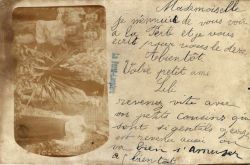 Mademoiselle
je m'ennuie de vous voir
à la Ferté et je vous
écris pour vous le dire
A bientôt
Votre petit ami
Lili
revenez vite avec
vos petits cousins qui
sont si gentils
est revenu aussi on
va bien s'amuser
à bientôt